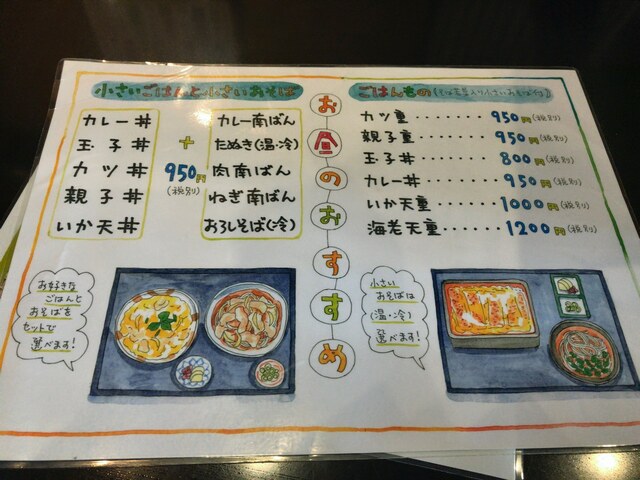 小さいごはんと小さいおそば
カレー丼
玉子丼
カツ丼
親子丼
いか天丼
+
950円
(税別)
カレー南ばん
たぬき(温・冷)
肉南ばん
ねぎ南ばん
おろしそば(冷)
お好きな
ごはんと
おそばを
セットで
選べます!
お昼のおすすめ
ごはんもの
カツ重・・・・・・・950円(税別)
親子重・・・・・・・950円(税別)
玉子丼・・・・・・・800円(税別)
カレー丼・・・・・・950円(税別)
いか天重・・・・・1000円(税別)
海老天重・・・・・1200円(税別)
小さい
おそばは
(温・冷)
選べます!